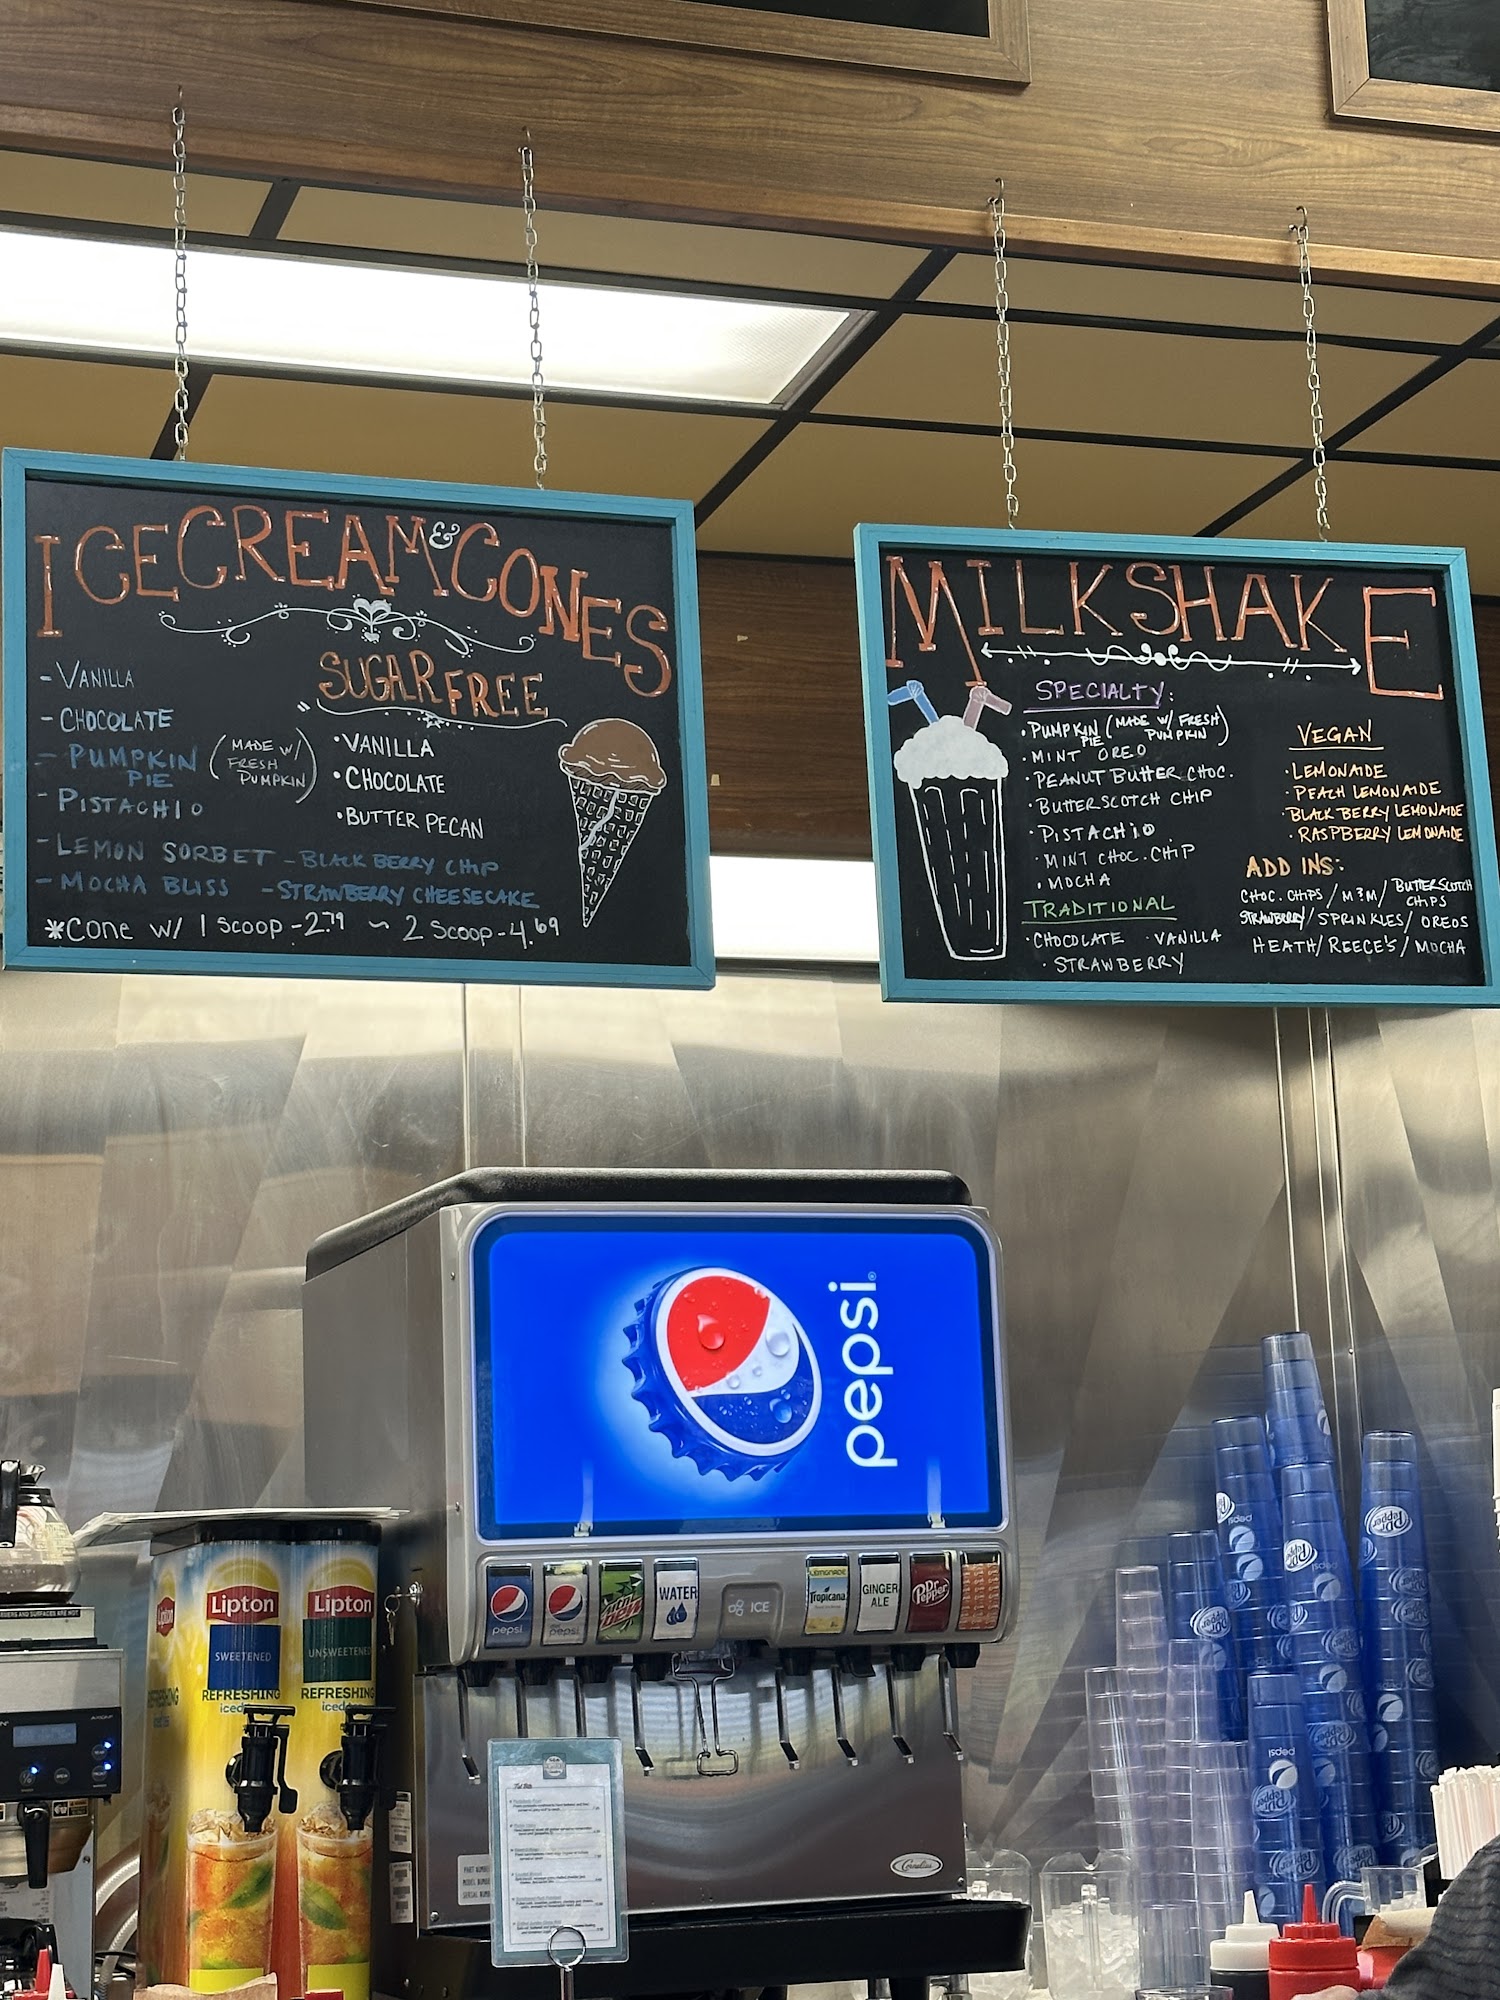 ICE CREAM & CONES
SUGAR FREE
- VANILLA
- CHOCOLATE
- PUMPKIN PIE (MADE W/ FRESH PUMPKIN)
- PISTACHIO
- LEMON SORBET - BLACKBERRY CHIP
- MOCHA BLISS - STRAWBERRY CHEESECAKE
• VANILLA
• CHOCOLATE
• BUTTER PECAN
*CONE W/ 1 SCOOP - 2.79 ~ 2 SCOOP - 4.69
MILKSHAKE
SPECIALTY:
• PUMPKIN PIE (MADE W/ FRESH PUMPKIN)
• MINT OREO
• PEANUT BUTTER CHOC.
• BUTTERSCOTCH CHIP
• PISTACHIO
• MINT CHOC. CHIP
• MOCHA
TRADITIONAL
• CHOCOLATE • VANILLA
• STRAWBERRY
VEGAN
• LEMONAIDE
• PEACH LEMONAIDE
• BLACKBERRY LEMONAIDE
• RASPBERRY LEMONAIDE
ADD INS:
CHOC. CHIPS / M&M / BUTTERSCOTCH CHIPS
STRAWBERRY / SPRINKLES / OREOS
HEATH / REECE'S / MOCHA
pepsi
pepsi
pepsi
mtn dew
WATER
ICE
LEMONADE
Tropicana
GINGER ALE
Dr Pepper
Lipton
SWEETENED
REFRESHING
iced
Lipton
UNSWEETENED
REFRESHING
iced
Cornelius
PART NUMBER
MODEL NUMBER
SERIAL NUMB
Dr Pepper
pepsi